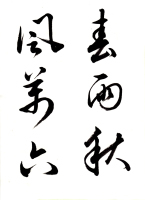 春雨秋
風万六